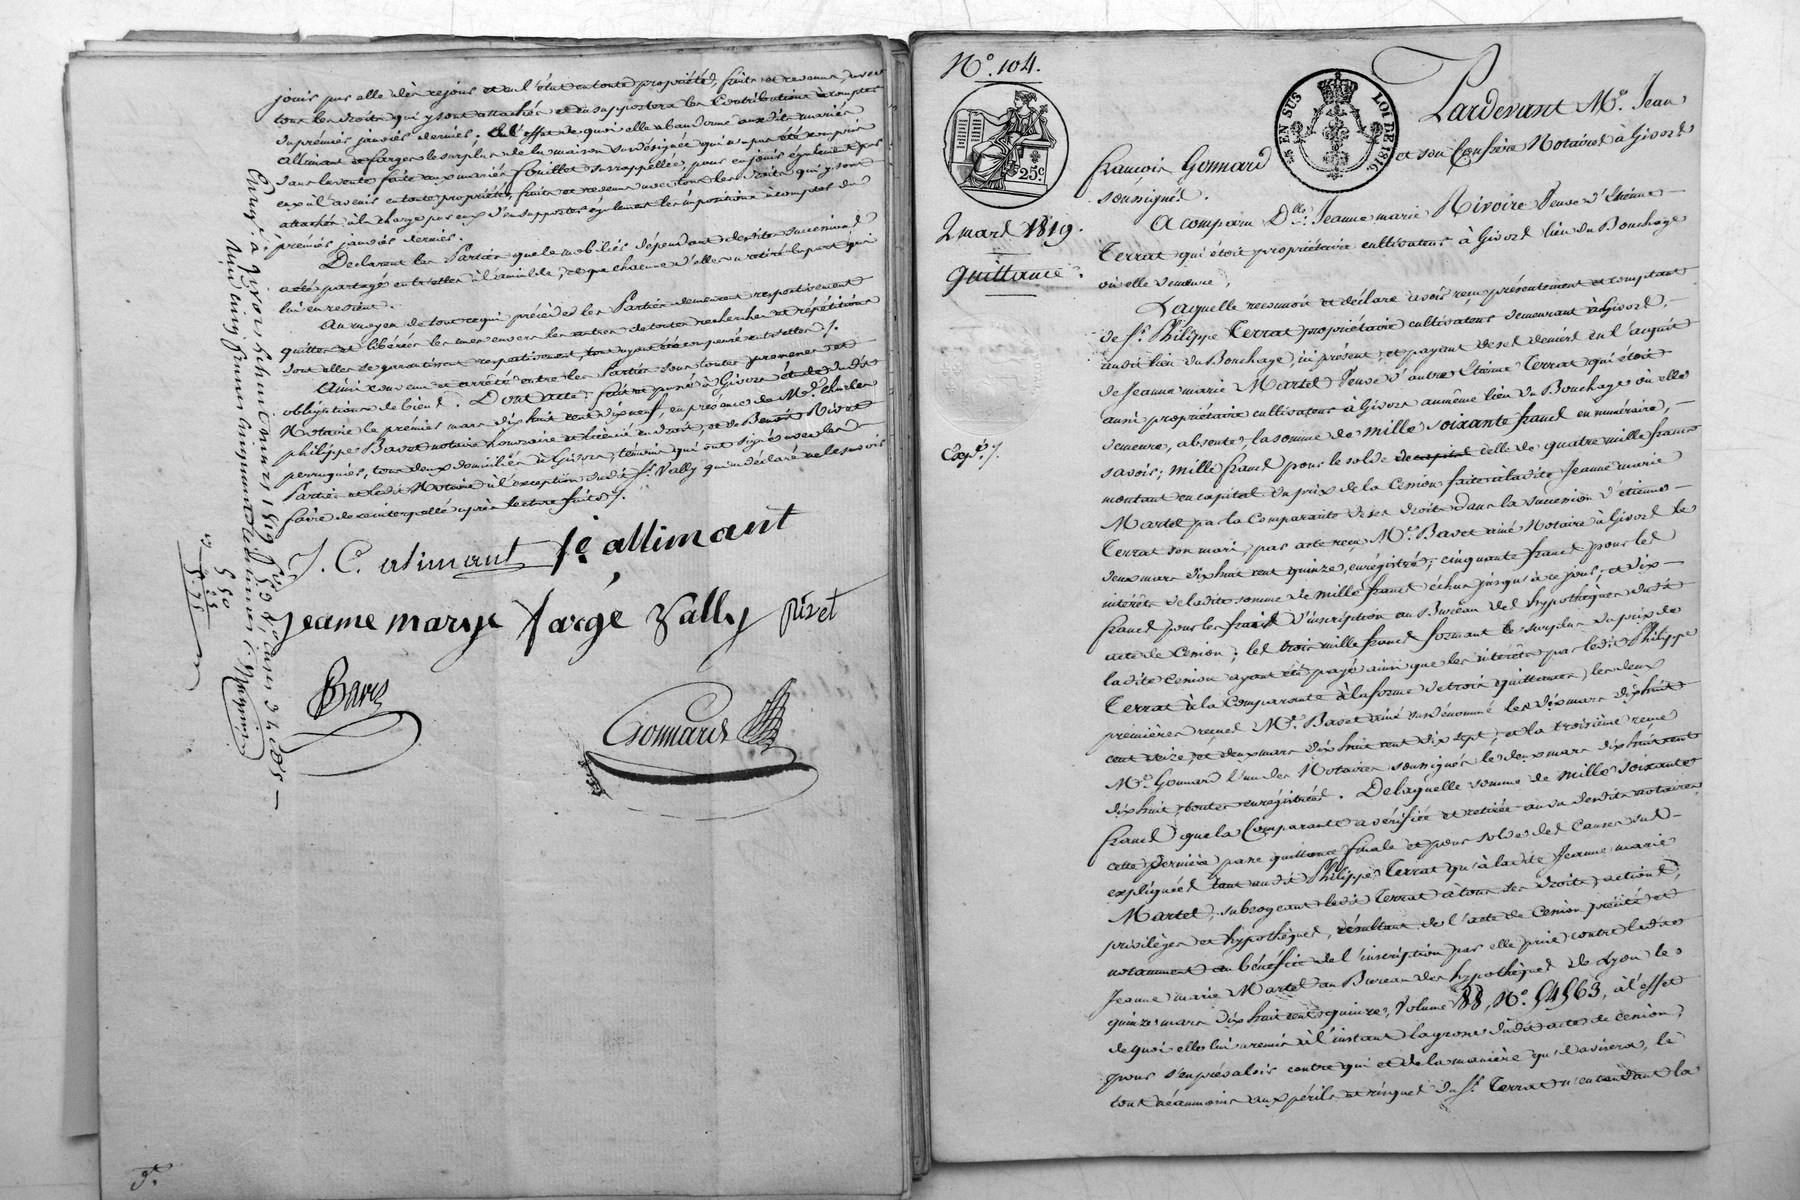 jouir par elle dès ce jour et en l'état en toute propriété, fruits et revenus, avec
tous les droits qui y sont attachés et en supportera les Contributions à compter
du premier janvier dernier. à l'effet de quoi elle abandonne aux dits mariés
Allimant et farge le surplus de la maison sus désignée qui n'a pas été compris
dans la vente faite aux mariés fouillet sus rappellée, pour en jouir également par
eux à l'avenir en toute propriété, fruits et revenus avec tous les droits qui y sont
attachés à la charge par eux d'en supporter également les impositions à compter du
premier janvier dernier.
Déclarent les Parties que le mobilier dépendant desdites successions
a été partagé entr'elles à l'amiable, et que chacune d'elles a retiré la part qui
lui en revient.
Au moyen de tout ce qui précède les Parties demeurent respectivement
quittes et libérées les unes envers les autres de toutes recherches et répétitions
dont elles se garantissent respectivement, tout ayant été compensé entr'elles /.
Ainsi convenu et arrêté entre les Parties sous toutes promesses et
obligations de biens. Dont acte : fait et passé à Givors étude dudit
Notaire le premier mars dix huit cent dix neuf, en présence de Mr. Charles
philippe Bavet notaire honoraire et licencié en droit, et de Benoit Rivet
perruquier, tous deux domiciliés à Givors, témoins qui ont signé avec les
Parties et ledit Notaire à l'exception dudit Sr. Vally qui a déclaré ne le savoir
faire de ce interpellé après lecture faite /.
J. C. alimant fe allimant
jeanne marye farge Vally Rivet
Bavet
Gonnard
Enreg. à Givors le huit mars 1819
5 50
55
N°. 104.
25c.
EN SUS
LOI DE 1816
2 mars 1819.
quittance.
Expé. /.
Pardevant Me. Jean
françois Gonnard et son Confrère Notaires à Givors
soussignés.
A comparu Dlle. Jeanne marie Rivoire Veuve d'Etienne
Terrat qui étoit propriétaire cultivateur à Givors lieu du Bouchage
où elle demeure,
Laquelle reconnoit et déclare avoir reçu présentement et comptant
de Sr. Philippe Terrat propriétaire cultivateur demeurant à Givors,
audit lieu du Bouchage, ici présent, et payant de ses deniers en l'acquit
de Jeanne marie Martel Veuve d'autre Etienne Terrat qui étoit
aussi propriétaire cultivateur à Givors au même lieu du Bouchage où elle
demeure, absente, la somme de mille soixante francs en numéraire,
savoir; mille francs pour le solde de capital celle de quatre mille francs
montant en capital du prix de la Cession faite à ladite Jeanne marie
Martel par la Comparante de ses droits dans la succession d'etienne
Terrat son mari, par acte reçu Me. Bavet ainé Notaire à Givors le
deux mars dix huit cent quinze, enrégistré; cinquante francs pour les
intérêts de ladite somme de mille francs échus jusqu'à ce jour; et dix
francs pour les frais d'inscription au Bureau des hypothèques dudit
acte de Cession; les trois mille francs formant le surplus du prix de
ladite Cession ayant été payé ainsi que les intérêts par ledit Philippe
Terrat à la Comparante à la forme de trois quittances, les deux
premières reçues Me. Bavet ainé susdénommé les dix mars dix huit
cent seize, et deux mars dix huit cent dix sept, et la troisième reçue
Me. Gonnard l'un des Notaires soussignés le deux mars dix huit cent
dix huit, toutes enrégistrées. De laquelle somme de mille soixante
francs que la Comparante a vérifiée et retirée au vu desdits notaires
cette dernière passe quittance finale et pour solde des Causes sus
expliquées tant audit Philippe Terrat qu'à ladite Jeanne marie
Martel, subrogeant ledit Terrat à tous ses droits, actions,
privilèges et hypothèques, résultant de l'acte de Cession précité et
notamment au bénéfice de l'inscription par elle prise contre ladite
Jeanne marie Martel au Bureau des hypothèques de Lyon le
quinze mars dix huit cent quinze, Volume 88, N°. 54563, à l'effet
de quoi elle lui a remis à l'instant la grosse dudit acte de Cession,
pour s'en prévaloir contre qui et de la manière qu'il avisera, le
tout néanmoins aux périls et risques du Sr. Terrat n'entendant la